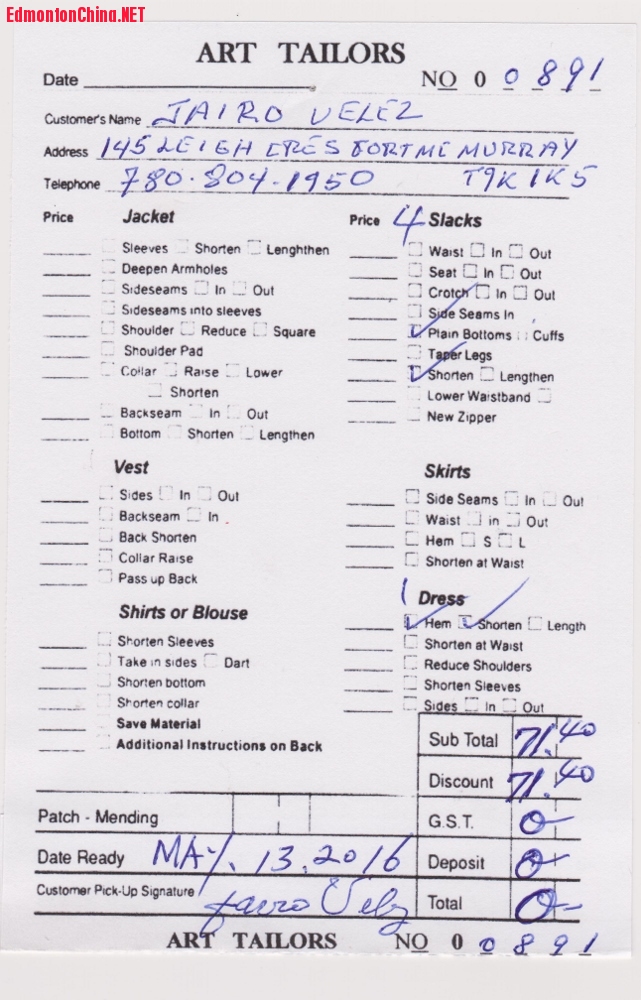 EdmontonChina.NET
ART TAILORS
Date NO 0 0 891
Customer's Name JAIRO VELEZ
Address 145 LEIGH CRES FORTMC MURRAY
Telephone 780-804-1950 T9K 1K5
Price Jacket
Sleeves Shorten Lenghthen
Deepen Armholes
Sideseams In Out
Sideseams into sleeves
Shoulder Reduce Square
Shoulder Pad
Collar Raise Lower
Shorten
Backseam In Out
Bottom Shorten Lengthen
Vest
Sides In Out
Backseam In
Back Shorten
Collar Raise
Pass up Back
Shirts or Blouse
Shorten Sleeves
Take in sides Dart
Shorten bottom
Shorten collar
Save Material
Additional Instructions on Back
Price 4 Slacks
Waist In Out
Seat In Out
Crotch In Out
Side Seams In
Plain Bottoms Cuffs
Taper Legs
Shorten Lengthen
Lower Waistband
New Zipper
Skirts
Side Seams In Out
Waist in Out
Hem S L
Shorten at Waist
1 Dress
Hem Shorten Length
Shorten at Waist
Reduce Shoulders
Shorten Sleeves
Sides In Out
Sub Total 71.40
Discount 71.40
Patch - Mending G.S.T. 0-
Date Ready MAY. 13. 2016 Deposit 0-
Customer Pick-Up Signature Jairo Velez Total 0-
ART TAILORS NO 0 0 891